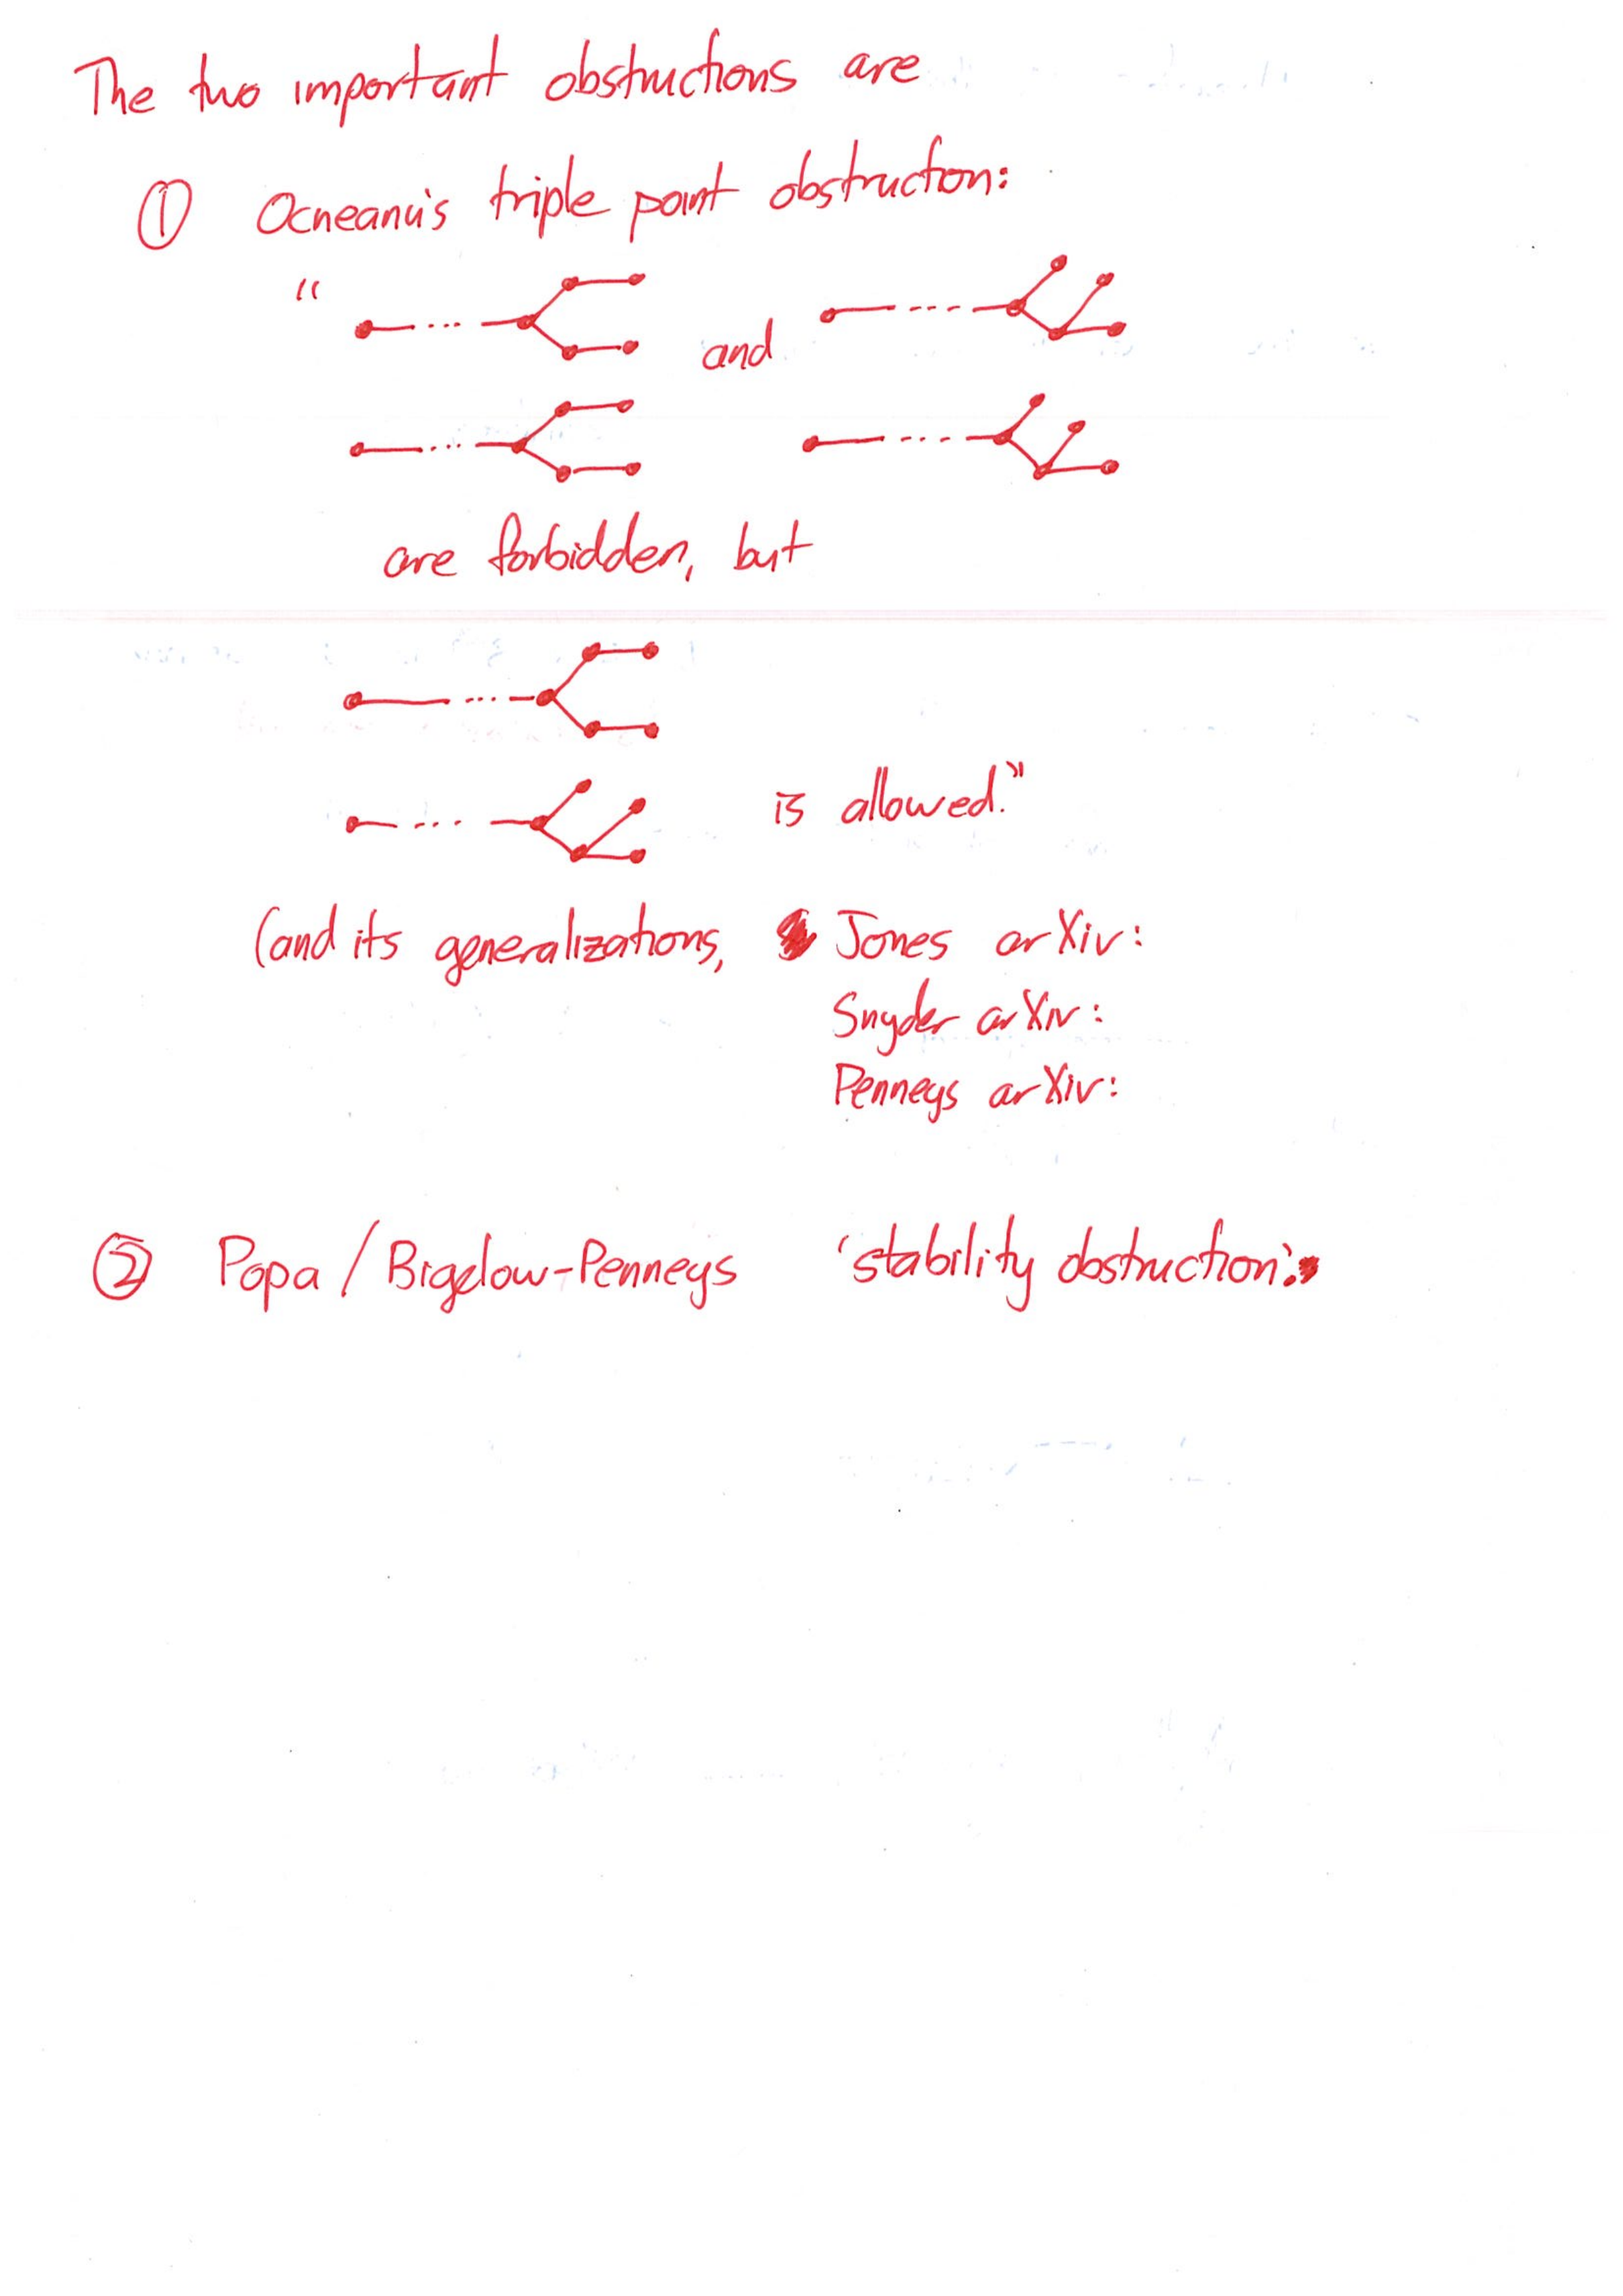 The two important obstructions are
① Ocneanu's triple point obstruction:
“
and
are forbidden, but
is allowed.”
(and its generalizations, Jones arXiv:
Snyder arXiv:
Penneys arXiv:
② Popa / Bigelow-Penneys 'stability obstruction':